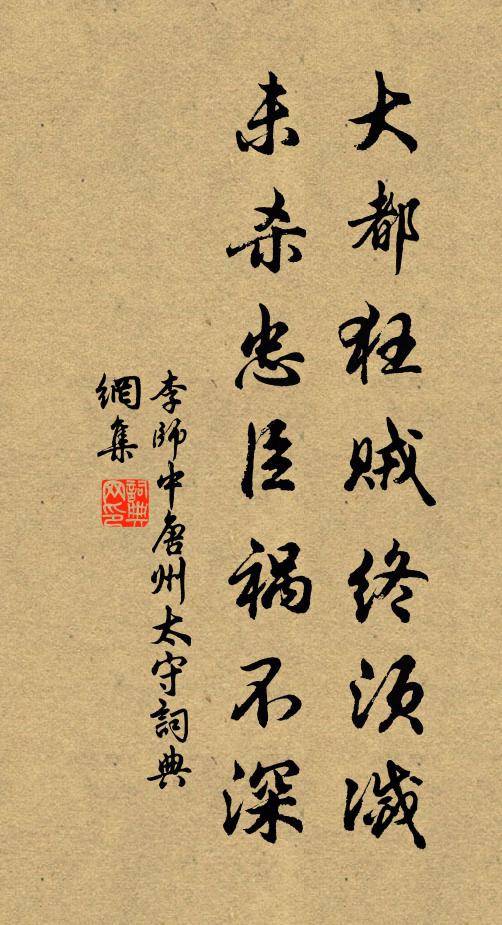 大都狂贼终须灭
未杀忠臣祸不深
李師中唐州太守詞典
網集
詞典
网印